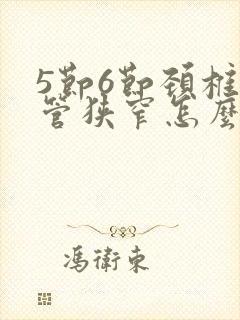 5節6節頚椎
管狹窄怎麼
馮衛東